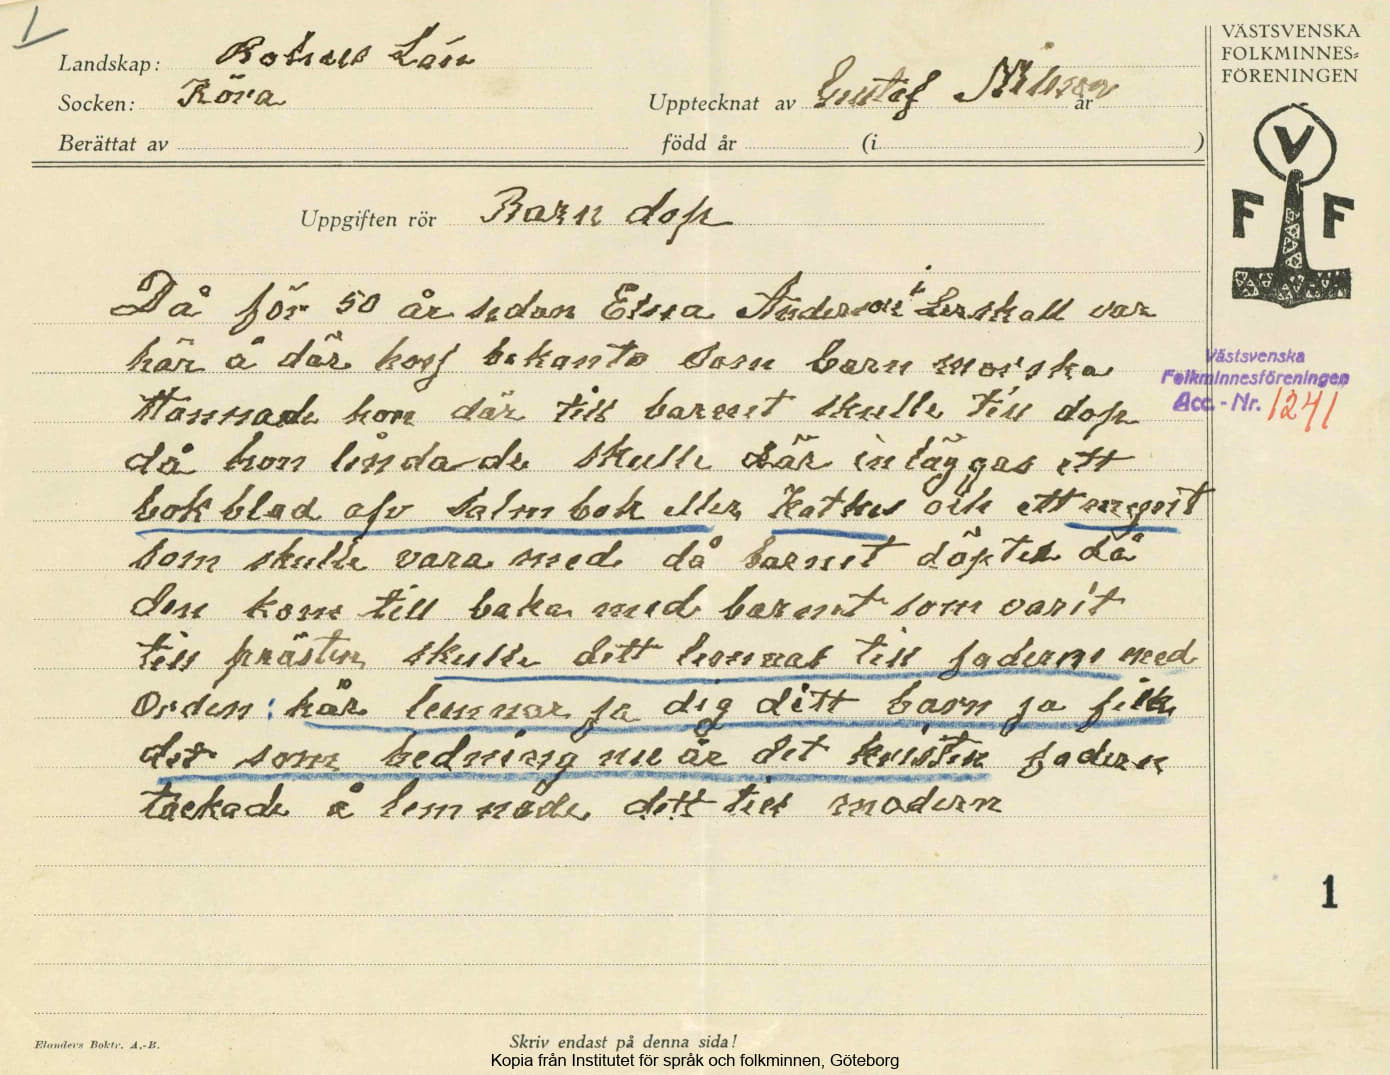 Landskap: Bohus Län
Socken: Röra
Upptecknat av Gustaf Nilsson år
Berättat av
född år (i )
VÄSTSVENSKA
FOLKMINNES-
FÖRENINGEN
V
F F
Uppgiften rör Barn dop
Då för 50 år sedan Elna Anderson i Lerskall var
här å där hos bekanta som barn morska
stannade hon där till barnet skulle till dop
då hon lindade skulle där inläggas ett
bok blad afv Salm bok eller Katkes och ett mynt
som skulle vara med då barnet döptes då
den kom till baka med barnet som varit
till prästen skulle ditt lemnas till faderns med
Orden: här lemnar ja dig ditt barn ja fikk
det som hedning nu är det kristen fadern
tackade å lemnade ditt till modern
Västsvenska
Folkminnesföreningen
Acc.-Nr. 1241
1
Elanders Boktr. A.-B.
Skriv endast på denna sida!
Kopia från Institutet för språk och folkminnen, Göteborg